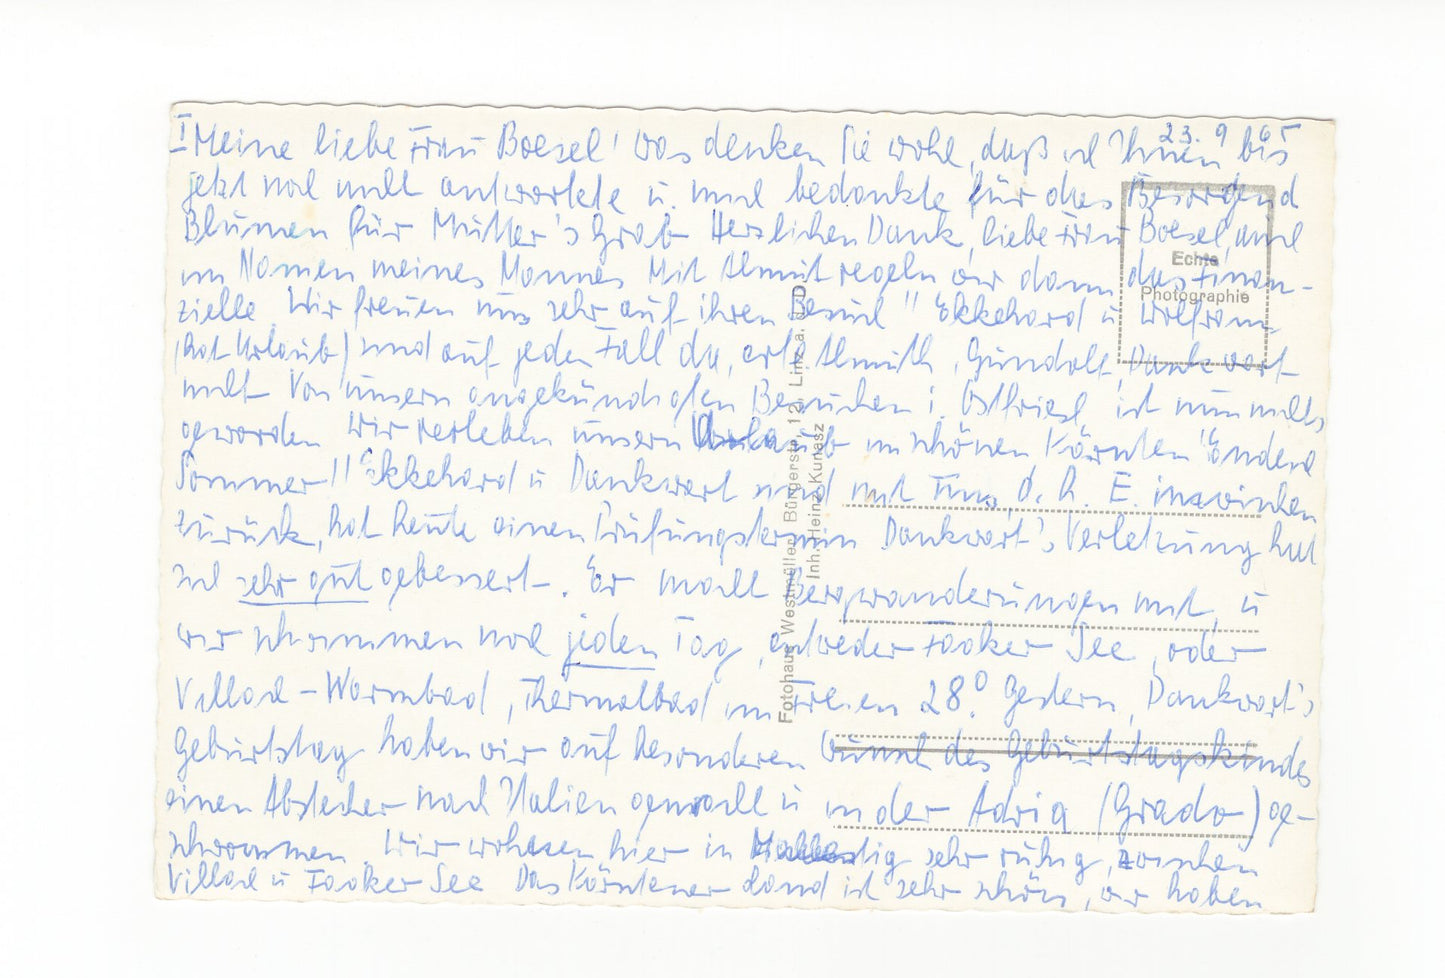 23. 9. 65
I Meine liebe Frau Boesel! Was denken Sie wohl, daß ich Ihnen bis
jetzt noch nicht antwortete u. mich bedankte für das Besorgen d
Blumen für Mutter's Grab Herzlichen Dank, liebe Frau Boesel, auch
im Namen meines Mannes Mit Almut regeln wir dann das Finan-
zielle Wir freuen uns sehr auf ihren Besuch!! Ekkehard u Wolfram
(hat Urlaub) sind auf jeden Fall da, evtl. Almuth, Gundolf, Dankwart
nicht Von unsern angekündigten Besuchen i. Ostfriesl ist nun nichts
geworden Wir verleben unsern Urlaub im schönen Kärnten "Endlich
Sommer!! Ekkehard u Dankwart sind mit uns, d. h. E. inzwischen
zurück, hat heute einen Prüfungstermin Dankwart's Verletzung hat
sich sehr gut gebessert. Er macht Bergwanderungen mit, u
wir schwimmen noch jeden Tag, entweder Faaker See, oder
Villach-Warmbad, Thermalbad im Freien 28°. Gestern, Dankwart's
Geburtstag haben wir auf besonderen Wunsch des Geburtstagskindes
einen Abstecher nach Italien gemacht u in der Adria (Grado) ge-
schwommen. Wir wohnen hier in sehr ruhig, zwischen
Villach u Faaker See Das Kärntener Land ist sehr schön, wir haben
Echte
Photographie
Fotohaus Westmüller, Bürgerstr. 12, Linz a. d. D
Inh. Heinz Kunasz